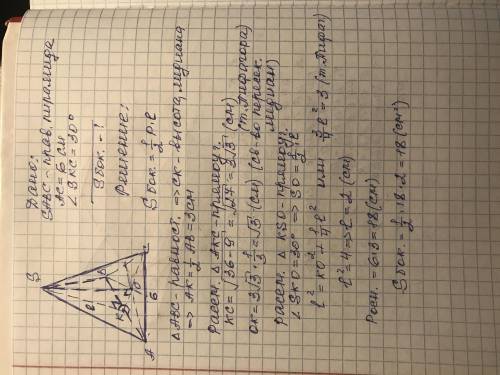 Дано:
SABC - прав. пирамида
AC = 6 см
∠SKC = 30°
Sбок. - ?
Решение:
Sбок = 1/2 P·l
△ABC - равност. ⇒ CK - высота, медиана
⇒ AK = 1/2 AB = 3 см
Рассм. △AKC - прямоуг.
KC = √36-9 = √27 = 3√3 (см)
(т. Пифагора)
OK = 3√3 · 1/3 = √3 (см) (св-во пересек.
медиан)
Рассм. △KSO - прямоуг.
∠SKO = 30° ⇒ SO = 1/2 l
l² = KO² + 1/4 l² или 3/4 l² = 3 (т. Пифаг)
l² = 4 ⇒ l = 2 (см)
Pосн. = 6·3 = 18 (см)
Sбок. = 1/2 · 18 · 2 = 18 (см²)
S
l
K
O
A
6
C